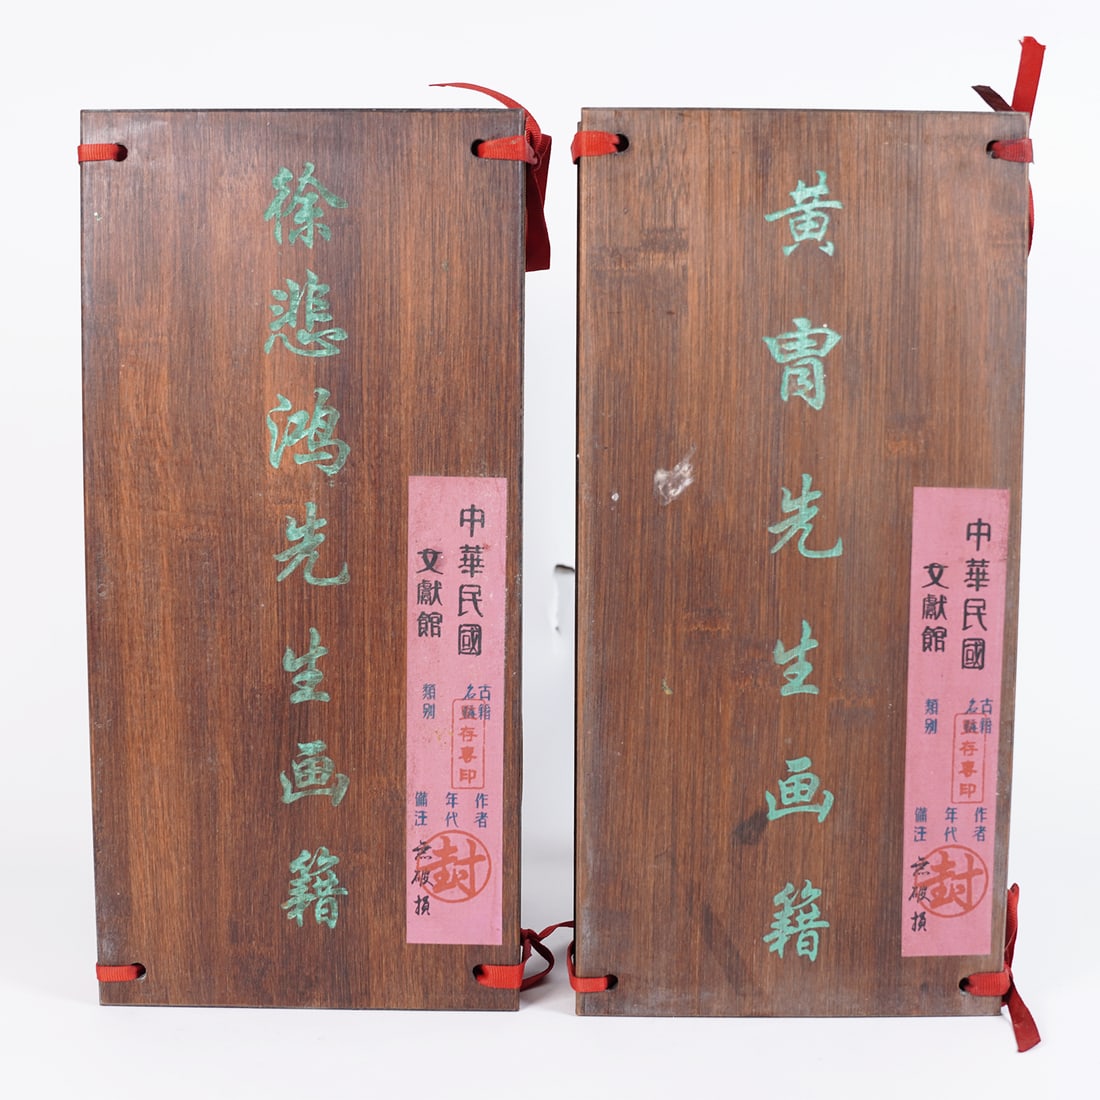 徐悲鴻先生画籍
中華民國
文獻館
古籍
名
類别
存專印
作者
年代
備注
封
無破損
黄胄先生画籍
中華民國
文獻館
古籍
名
類别
存專印
作者
年代
備注
封
無破損